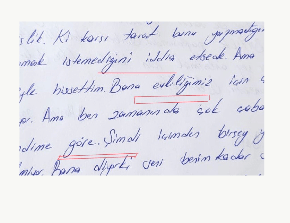 slik. Ki karsı taraf bunu yapmadığın
mak istemediğini iddia etsede. Ama
yle hissettim. Bana evliliğimiz için ç
or. Ama ben zamanında çok çaba
dime göre. Şimdi içimden birşey y
miyor. Bana diyorki seni benim kadar